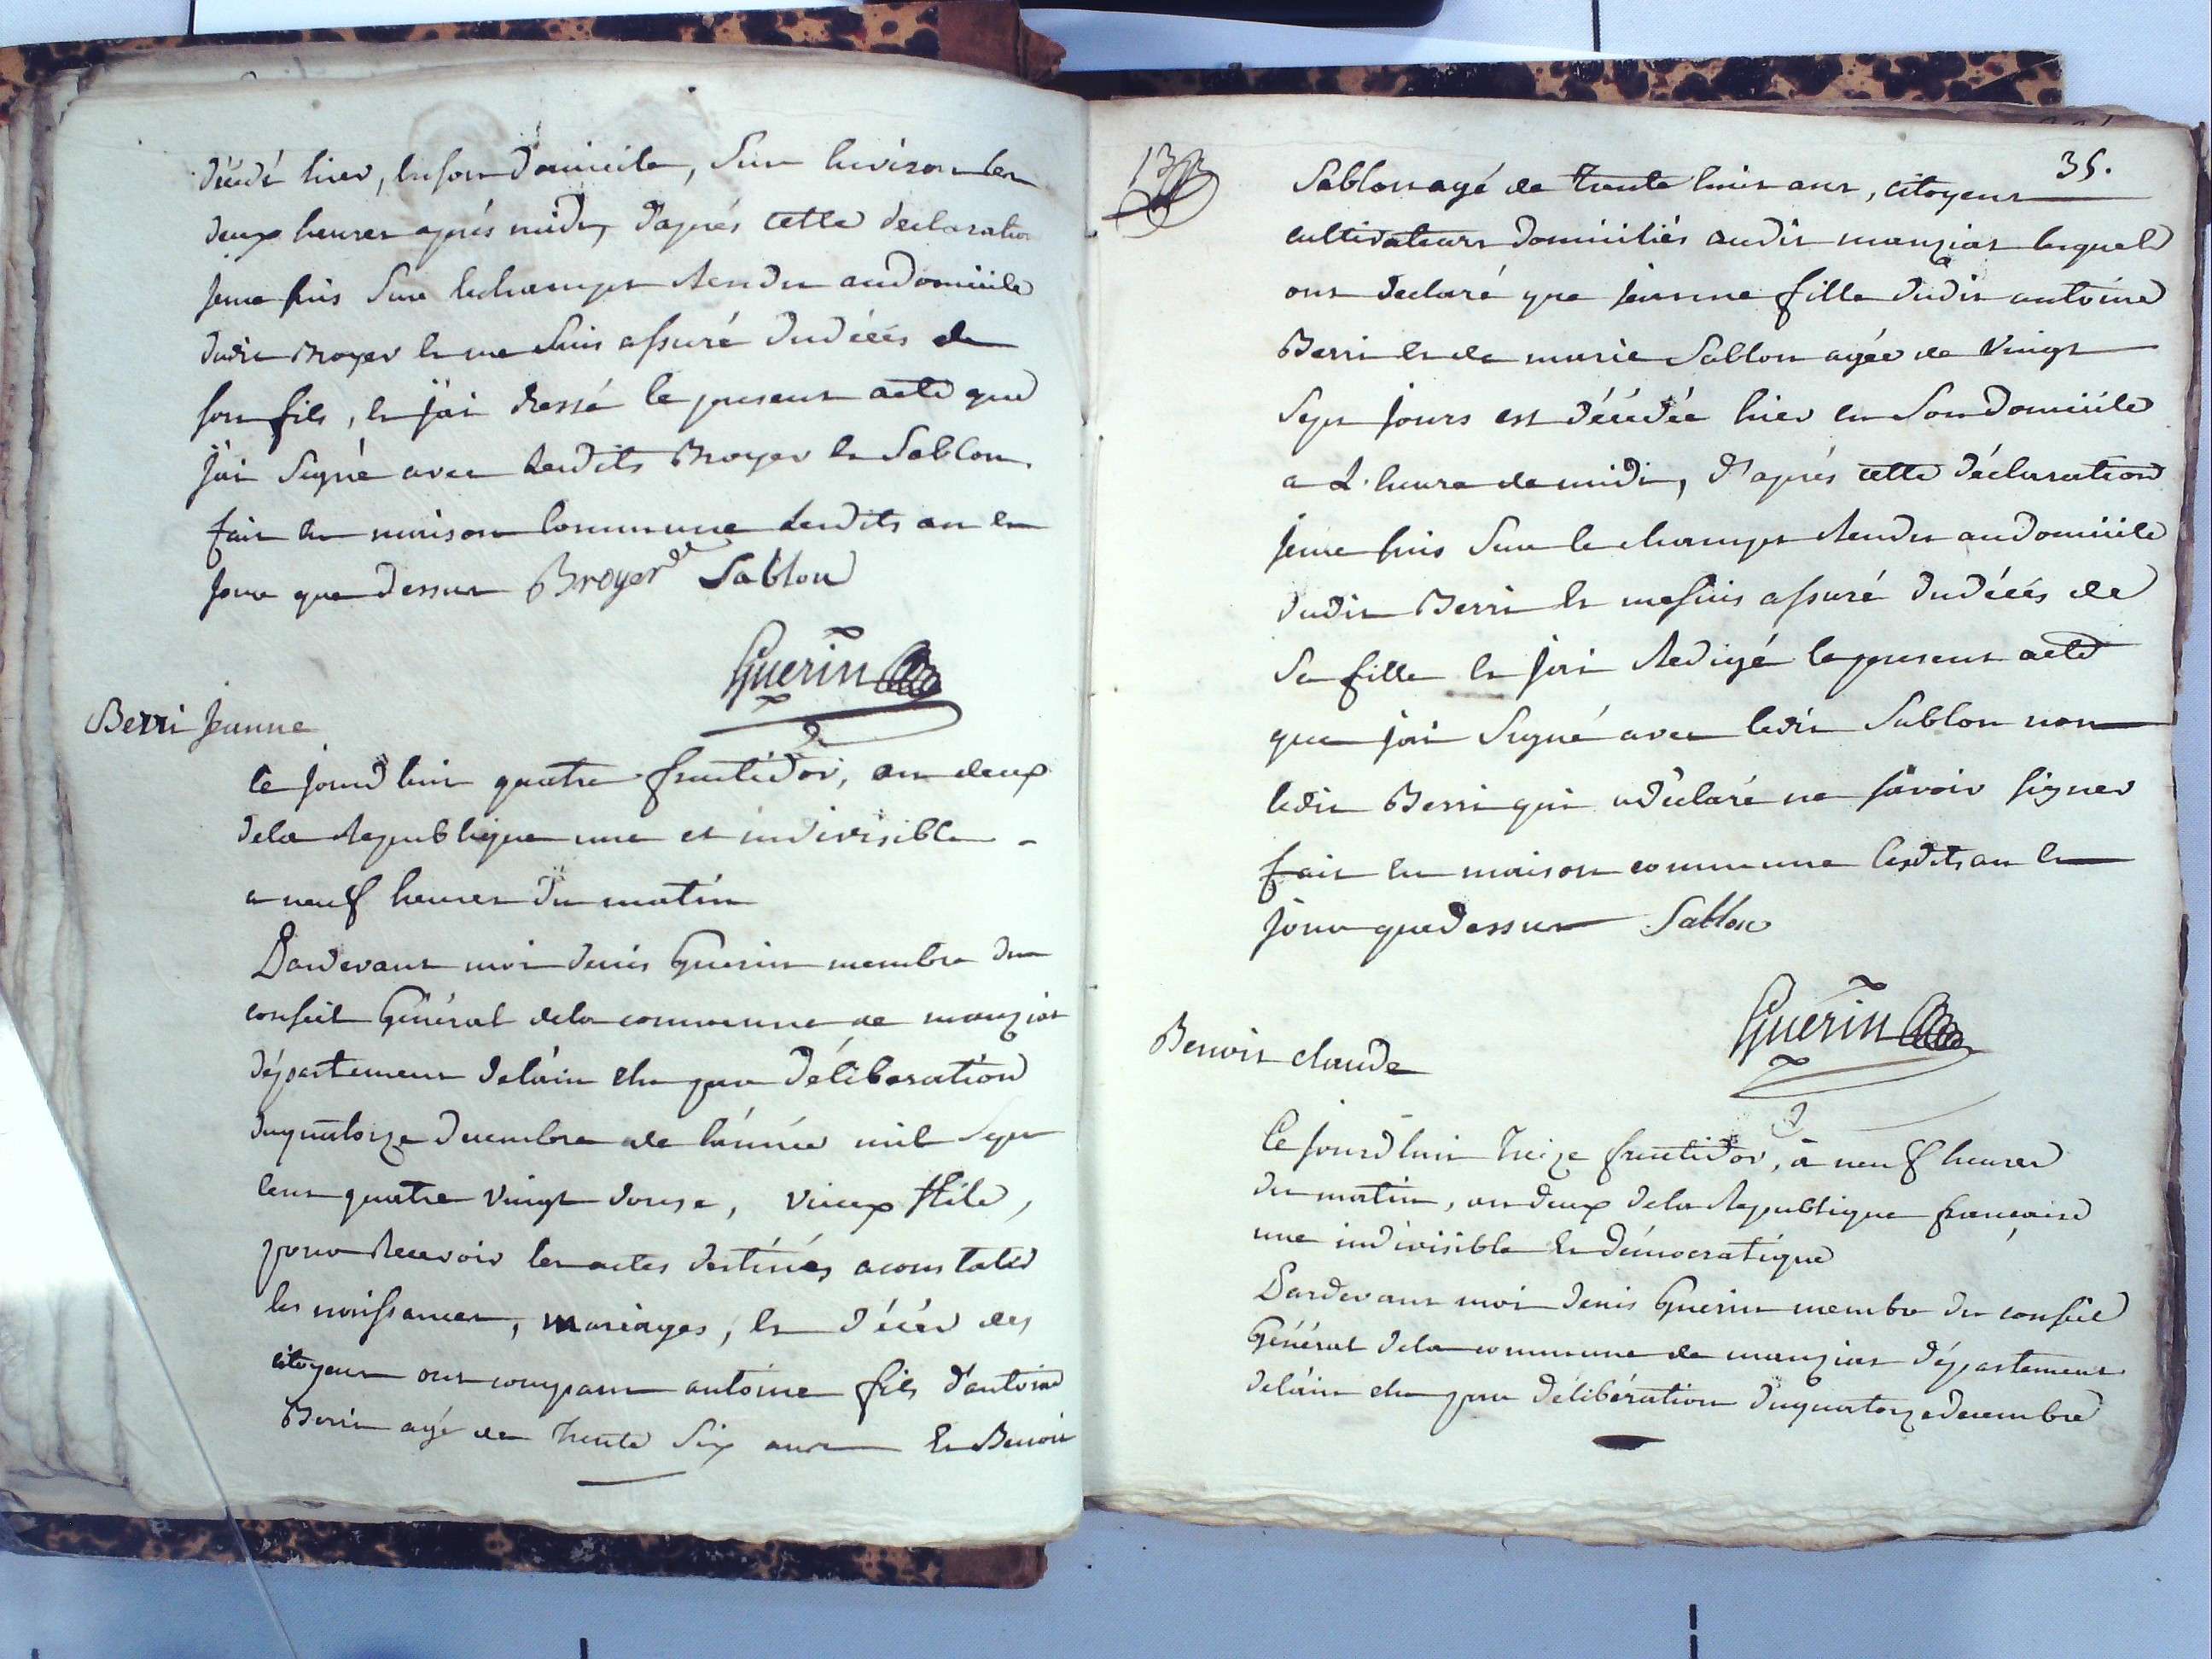 décédé hier, en son domicile, sur environ les
deux heures après midy, d'après cette declaration
je me suis sur le champs rendu au domicile
dudit Broyer et me suis assuré du décès de
son fils, et j'ai dressé le present acte que
j'ai signé avec lesdits Broyer et Sablon.
fait en maison Commune lesdits an et
jour que dessus Broyer Sablon
Guerin
Berri Jeanne
Ce jourd'hui quatre fructidor, an deux
de la Republique une et indivisible
a neuf heures du matin
Pardevant moi denis Guerin membre du
conseil Général de la commune de manziat
département de lain elu par délibération
du quatorze decembre de l'année mil sept
cens quatre vingt douze, vieux stile,
pour recevoir les actes destinés a constater
les naissances, mariages, et décès des
citoyens ont comparu antoine fils d'antoine
Berri agé de trente six ans et Benoit
35.
Sablon agé de trente huit ans, citoyens
cultivateurs domiciliés audit manziat lesquels
ont declaré que jeanne fille dudit antoine
Berri et de marie Sablon agée de vingt
sept jours est décédée hier en son domicile
a l'heure de midi, d'après cette déclaration
je me suis sur le champs rendu au domicile
dudit Berri et me suis assuré du décès de
sa fille et j'ai redigé le present acte
que j'ai signé avec ledit Sablon non
ledit Berri qui a déclaré ne savoir signer
fait en maison commune lesdits an et
jour que dessus Sablon
Guerin
Benoit claude
Ce jourd'hui treize fructidor, à neuf heures
du matin, an deux de la Republique francaise
une indivisible et démocratique
Pardevant moi denis Guerin membre du conseil
Général de la commune de manziat département
de lain elu par délibération du quatorze decembre